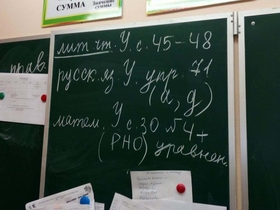 СУММА
Значение суммы
прав.
лит. чт. У. с. 45-48
русск. яз. У. упр. 71
(а, д)
матем. У с. 30 №4+
(РНО) уравнен.